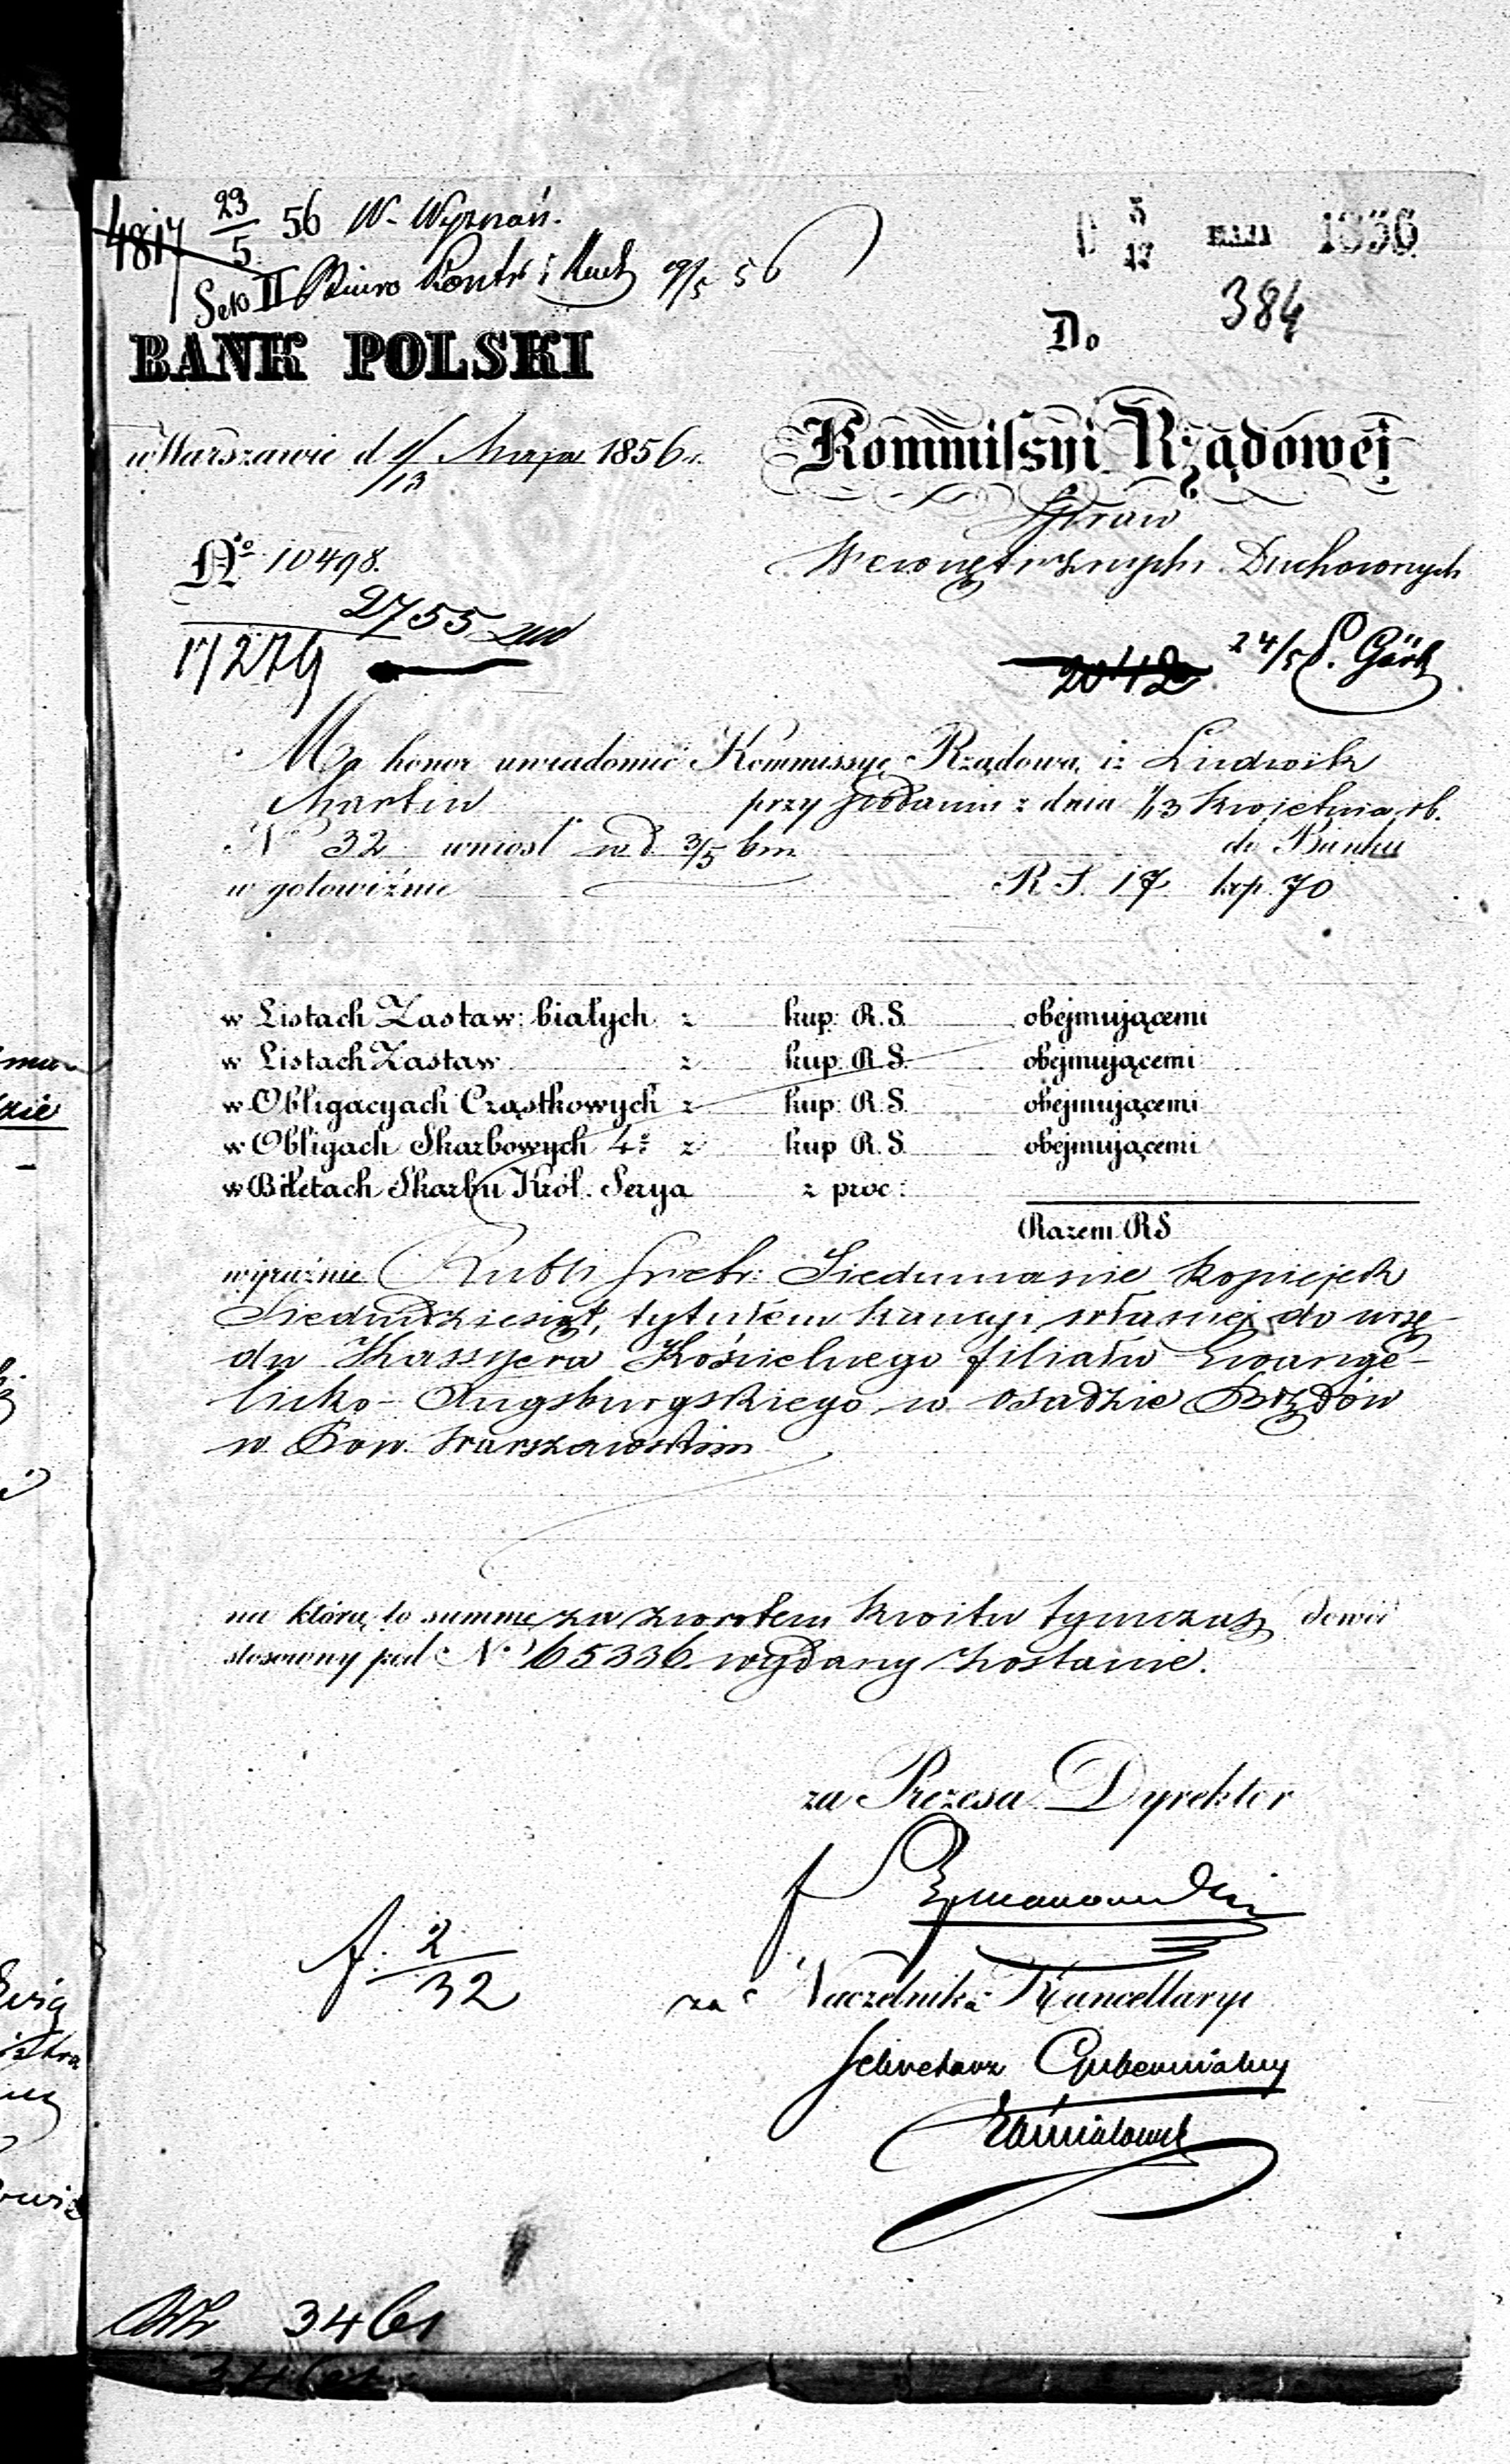 4817 23/5 56 W. Wyznań.
Sek II Biuro Kontr i Rach 9/5 56
5/17 MAJA 1856
384
Do
BANK POLSKI
Kommissyi Rządowej
w Warszawie d 1/13 Maja 1856 r.
Spraw
Wewnętrznych Duchownych
No 10498.
2755
17274
2042
24/5
Ma honor uwiadomić Kommissyę Rządową, iż Ludwik
Martin przy podaniu z dnia 1/13 Kwietnia rb.
No 32 wniósł w d 3/5 bm do Banku
w gotowiźnie R S. 17 kop. 70
w Listach Zastaw: białych z kup: R. S. obejmującemi
w Listach Zastaw z kup: R. S. obejmującemi
w Obligacyach Cząstkowych z kup: R. S. obejmującemi
w Obligach Skarbowych 4% z kup R. S. obejmującemi
w Biletach Skarbu Król. Serya z proc:
Razem RS
wyraźnie Rubli srebr: Siedmnaście kopiejek
Siedmdziesiąt, tytułem kaucyi własnej do urzę-
du Kassyera Kościelnego filiału Ewange-
licko-Augsburgskiego w osadzie
w Pow. Warszawskim
na którą to summę za zwrotem kwitu tymczas: dowód
stosowny pod No 65336 wydany zostanie.
za Prezesa Dyrektor
f. 2/32
za Naczelnika Kancellaryi
Sekretarz Gubernialny
3461